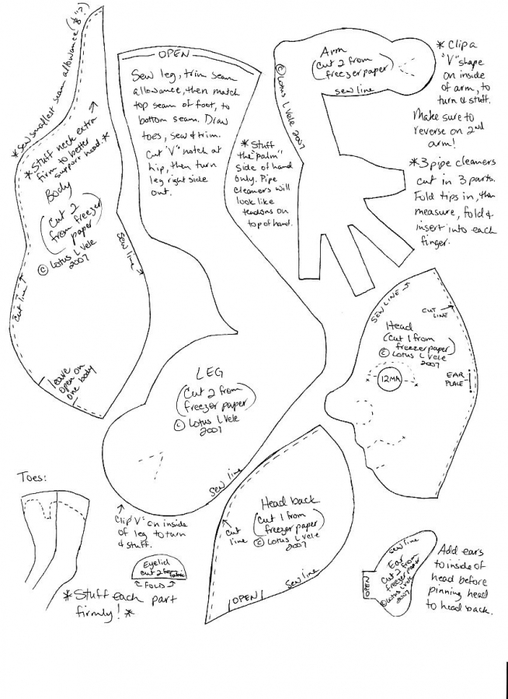 *Sew smallest seam allowance (⅛"?)
*Stuff neck extra
firm to better
support head.*
Body
(Cut 2
from freezer
paper)
© Lotus L Vele
2007
Cut line
Sew line
leave
open on
one body
OPEN
Sew leg, trim seam
allowance, then match
top seam of foot, to
bottom seam. Draw
toes, sew & trim.
Cut "V" notch at
hip, then turn
leg right side
out.
*Stuff
the "palm"
side of hand
only. Pipe
cleaners will
look like
tendons on
top of hand.
Arm
(Cut 2 from
freezer paper)
sew line
© Lotus L Vele 2007
*Clip a
"V" shape
on inside
of arm, to
turn & stuff.
Make sure to
reverse on 2nd
arm!
*3 pipe cleaners
cut in 3 parts.
Fold tips in, then
measure, fold &
insert into each
finger.
SEW LINE
CUT
LINE
Head
(Cut 1 from
freezer paper)
© Lotus L Vele
2007
12MM
EAR
PLACE
LEG
(Cut 2 from
freezer paper)
© Lotus L Vele
2007
Sew line
Clip "V" on inside
of leg to turn
& stuff.
Toes:
*Stuff each part
firmly!*
Eyelid
cut 2 from
FOLD
Head back
(Cut 1 from
freezer paper)
© Lotus L Vele
2007
cut
line
OPEN
Sew line
Sew line
Ear
Cut 2 from
freezer paper
© Lotus L Vele
2007
OPEN
Add ears
to inside of
head before
pinning head
to head back.